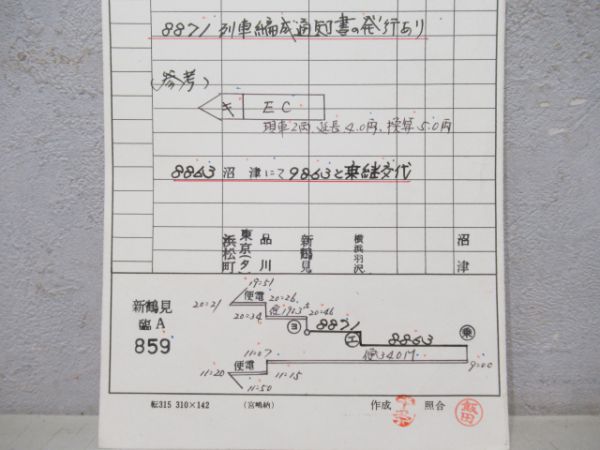 8871列車編成通知書の発行あり
(参考)
キ EC
現車2両、延長4.0両、換算5.0両
8863 沼津にて9863と乗継交代
浜松町
東京(タ)
品川
新鶴見
横浜羽沢
沼津
新鶴見
臨A
859
19=51
便電
20=21
20=26
20=34
20=46
ヨ
8871
エ
8863
乗
11=07
便340M
9=00
11=20
便電
11=15
11=50
転315 310×142
(宮嶋納)
作成
照合
飯田